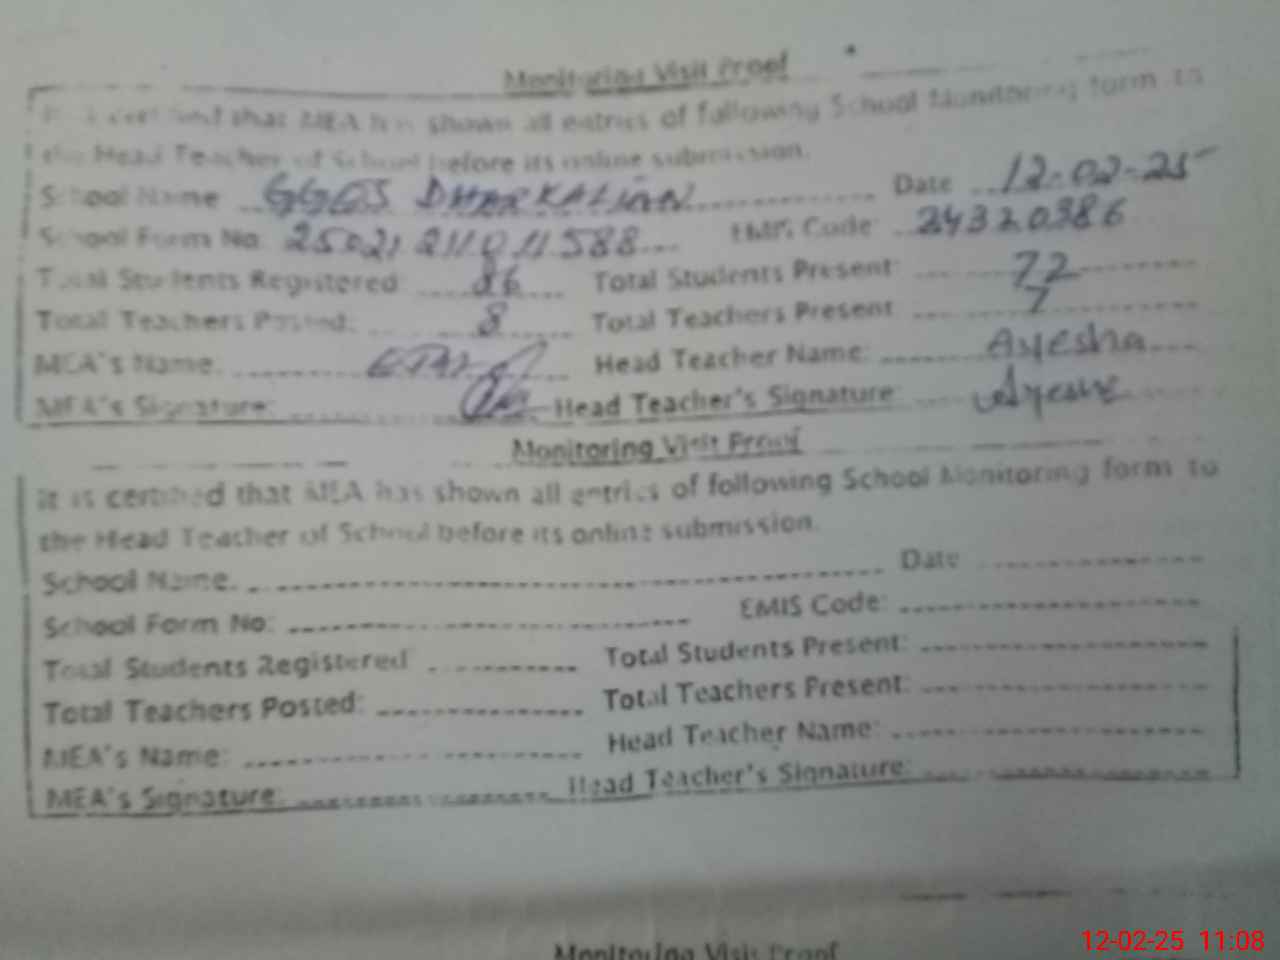 Monitoring Visit Proof
It is certified that MEA has shown all entries of following School Monitoring form to
the Head Teacher of School before its online submission.
School Name GGES DHARKALIAN Date 12-02-25
School Form No: 25021211011588 EMIS Code: 34320386
Total Students Registered: 86 Total Students Present: 72
Total Teachers Posted: 8 Total Teachers Present 7
MEA's Name: Head Teacher Name: Ayesha
MEA's Signature: Head Teacher's Signature: Ayesha
Monitoring Visit Proof
It is certified that MEA has shown all entries of following School Monitoring form to
the Head Teacher of School before its online submission.
School Name. Date
School Form No: EMIS Code:
Total Students Registered Total Students Present:
Total Teachers Posted: Total Teachers Present:
MEA's Name: Head Teacher Name:
MEA's Signature: Head Teacher's Signature:
Monitoring Visit Proof
12-02-25 11:08